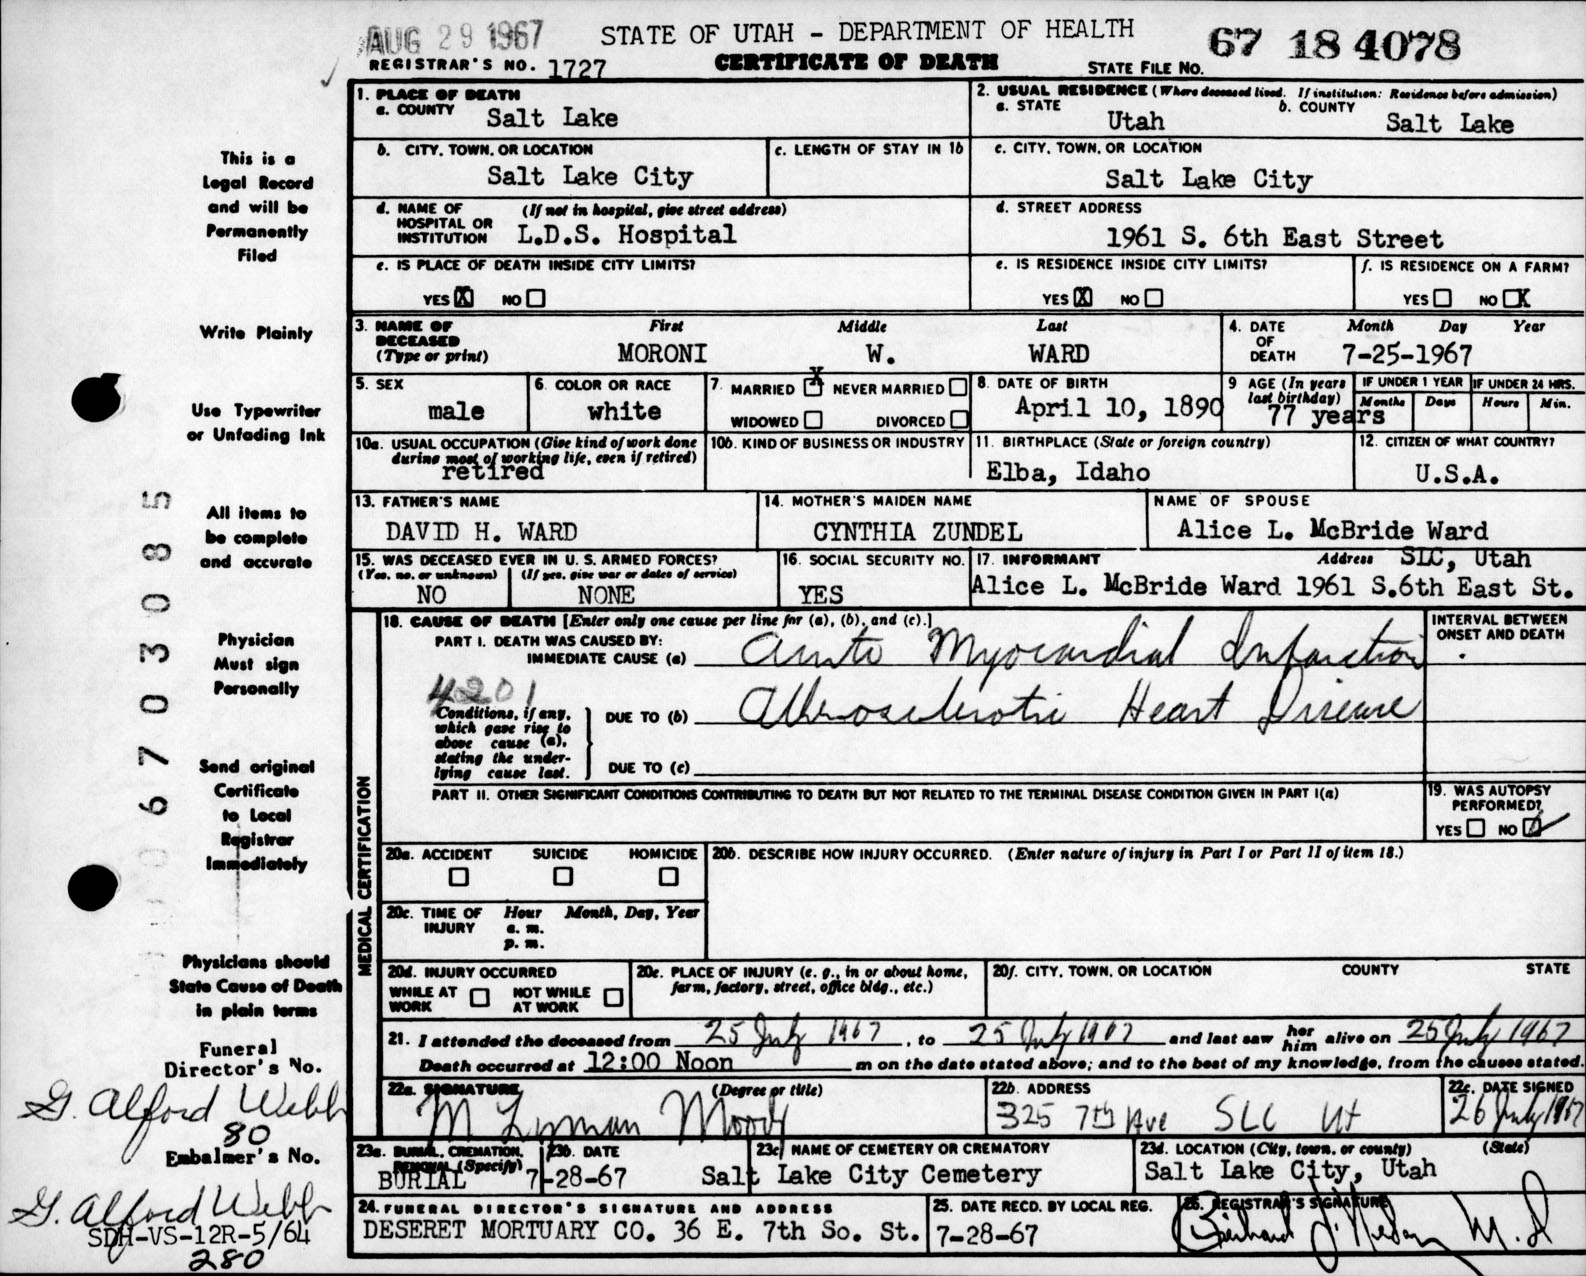 AUG 29 1967
STATE OF UTAH - DEPARTMENT OF HEALTH
67 18 4078
REGISTRAR'S NO. 1727
CERTIFICATE OF DEATH
STATE FILE NO.
1. PLACE OF DEATH
a. COUNTY Salt Lake
2. USUAL RESIDENCE (Where deceased lived. If institution: Residence before admission)
a. STATE Utah
b. COUNTY Salt Lake
b. CITY, TOWN, OR LOCATION
Salt Lake City
c. LENGTH OF STAY IN 1b
c. CITY, TOWN, OR LOCATION
Salt Lake City
d. NAME OF HOSPITAL OR INSTITUTION (If not in hospital, give street address)
L.D.S. Hospital
d. STREET ADDRESS
1961 S. 6th East Street
e. IS PLACE OF DEATH INSIDE CITY LIMITS?
YES X NO
e. IS RESIDENCE INSIDE CITY LIMITS?
YES X NO
f. IS RESIDENCE ON A FARM?
YES NO X
3. NAME OF DECEASED (Type or print)
First Middle Last
MORONI W. WARD
4. DATE OF DEATH
Month Day Year
7-25-1967
5. SEX
male
6. COLOR OR RACE
white
7. MARRIED X NEVER MARRIED
WIDOWED DIVORCED
8. DATE OF BIRTH
April 10, 1890
9 AGE (In years last birthday)
77 years
IF UNDER 1 YEAR
Months Days
IF UNDER 24 HRS.
Hours Min.
10a. USUAL OCCUPATION (Give kind of work done during most of working life, even if retired)
retired
10b. KIND OF BUSINESS OR INDUSTRY
11. BIRTHPLACE (State or foreign country)
Elba, Idaho
12. CITIZEN OF WHAT COUNTRY?
U.S.A.
13. FATHER'S NAME
DAVID H. WARD
14. MOTHER'S MAIDEN NAME
CYNTHIA ZUNDEL
NAME OF SPOUSE
Alice L. McBride Ward
15. WAS DECEASED EVER IN U. S. ARMED FORCES?
(Yes, no, or unknown) (If yes, give war or dates of service)
NO NONE
16. SOCIAL SECURITY NO.
YES
17. INFORMANT Address SLC, Utah
Alice L. McBride Ward 1961 S.6th East St.
MEDICAL CERTIFICATION
18. CAUSE OF DEATH [Enter only one cause per line for (a), (b), and (c).]
PART I. DEATH WAS CAUSED BY:
IMMEDIATE CAUSE (a) Acute Myocardial Infarction
INTERVAL BETWEEN ONSET AND DEATH
4201
Conditions, if any, which gave rise to above cause (a), stating the underlying cause last.
DUE TO (b) Atherosclerotic Heart Disease
DUE TO (c)
PART II. OTHER SIGNIFICANT CONDITIONS CONTRIBUTING TO DEATH BUT NOT RELATED TO THE TERMINAL DISEASE CONDITION GIVEN IN PART I(a)
19. WAS AUTOPSY PERFORMED?
YES NO ✓
20a. ACCIDENT SUICIDE HOMICIDE
20b. DESCRIBE HOW INJURY OCCURRED. (Enter nature of injury in Part I or Part II of item 18.)
20c. TIME OF INJURY Hour Month, Day, Year
a. m.
p. m.
20d. INJURY OCCURRED
WHILE AT WORK NOT WHILE AT WORK
20e. PLACE OF INJURY (e. g., in or about home, farm, factory, street, office bldg., etc.)
20f. CITY, TOWN, OR LOCATION COUNTY STATE
21. I attended the deceased from 25 July 1967, to 25 July 1967 and last saw her him alive on 25 July 1967
Death occurred at 12:00 Noon m on the date stated above; and to the best of my knowledge, from the causes stated.
22a. SIGNATURE (Degree or title)
M Lyman Moody
22b. ADDRESS
325 7th Ave SLC Ut
22c. DATE SIGNED
26 July 1967
23a. BURIAL, CREMATION, REMOVAL (Specify)
BURIAL
23b. DATE
7-28-67
23c. NAME OF CEMETERY OR CREMATORY
Salt Lake City Cemetery
23d. LOCATION (City, town, or county) (State)
Salt Lake City, Utah
24. FUNERAL DIRECTOR'S SIGNATURE AND ADDRESS
DESERET MORTUARY CO. 36 E. 7th So. St.
25. DATE RECD. BY LOCAL REG.
7-28-67
26. REGISTRAR'S SIGNATURE
M.D
This is a
Legal Record
and will be
Permanently
Filed
Write Plainly
Use Typewriter
or Unfading Ink
All items to
be complete
and accurate
Physician
Must sign
Personally
Send original
Certificate
to Local
Registrar
Immediately
Physicians should
State Cause of Death
in plain terms
Funeral
Director's No.
G. Alford Webb
80
Embalmer's No.
G. Alford Webb
SDH-VS-12R-5/64
280
0 6 7 0 3 0 8 5